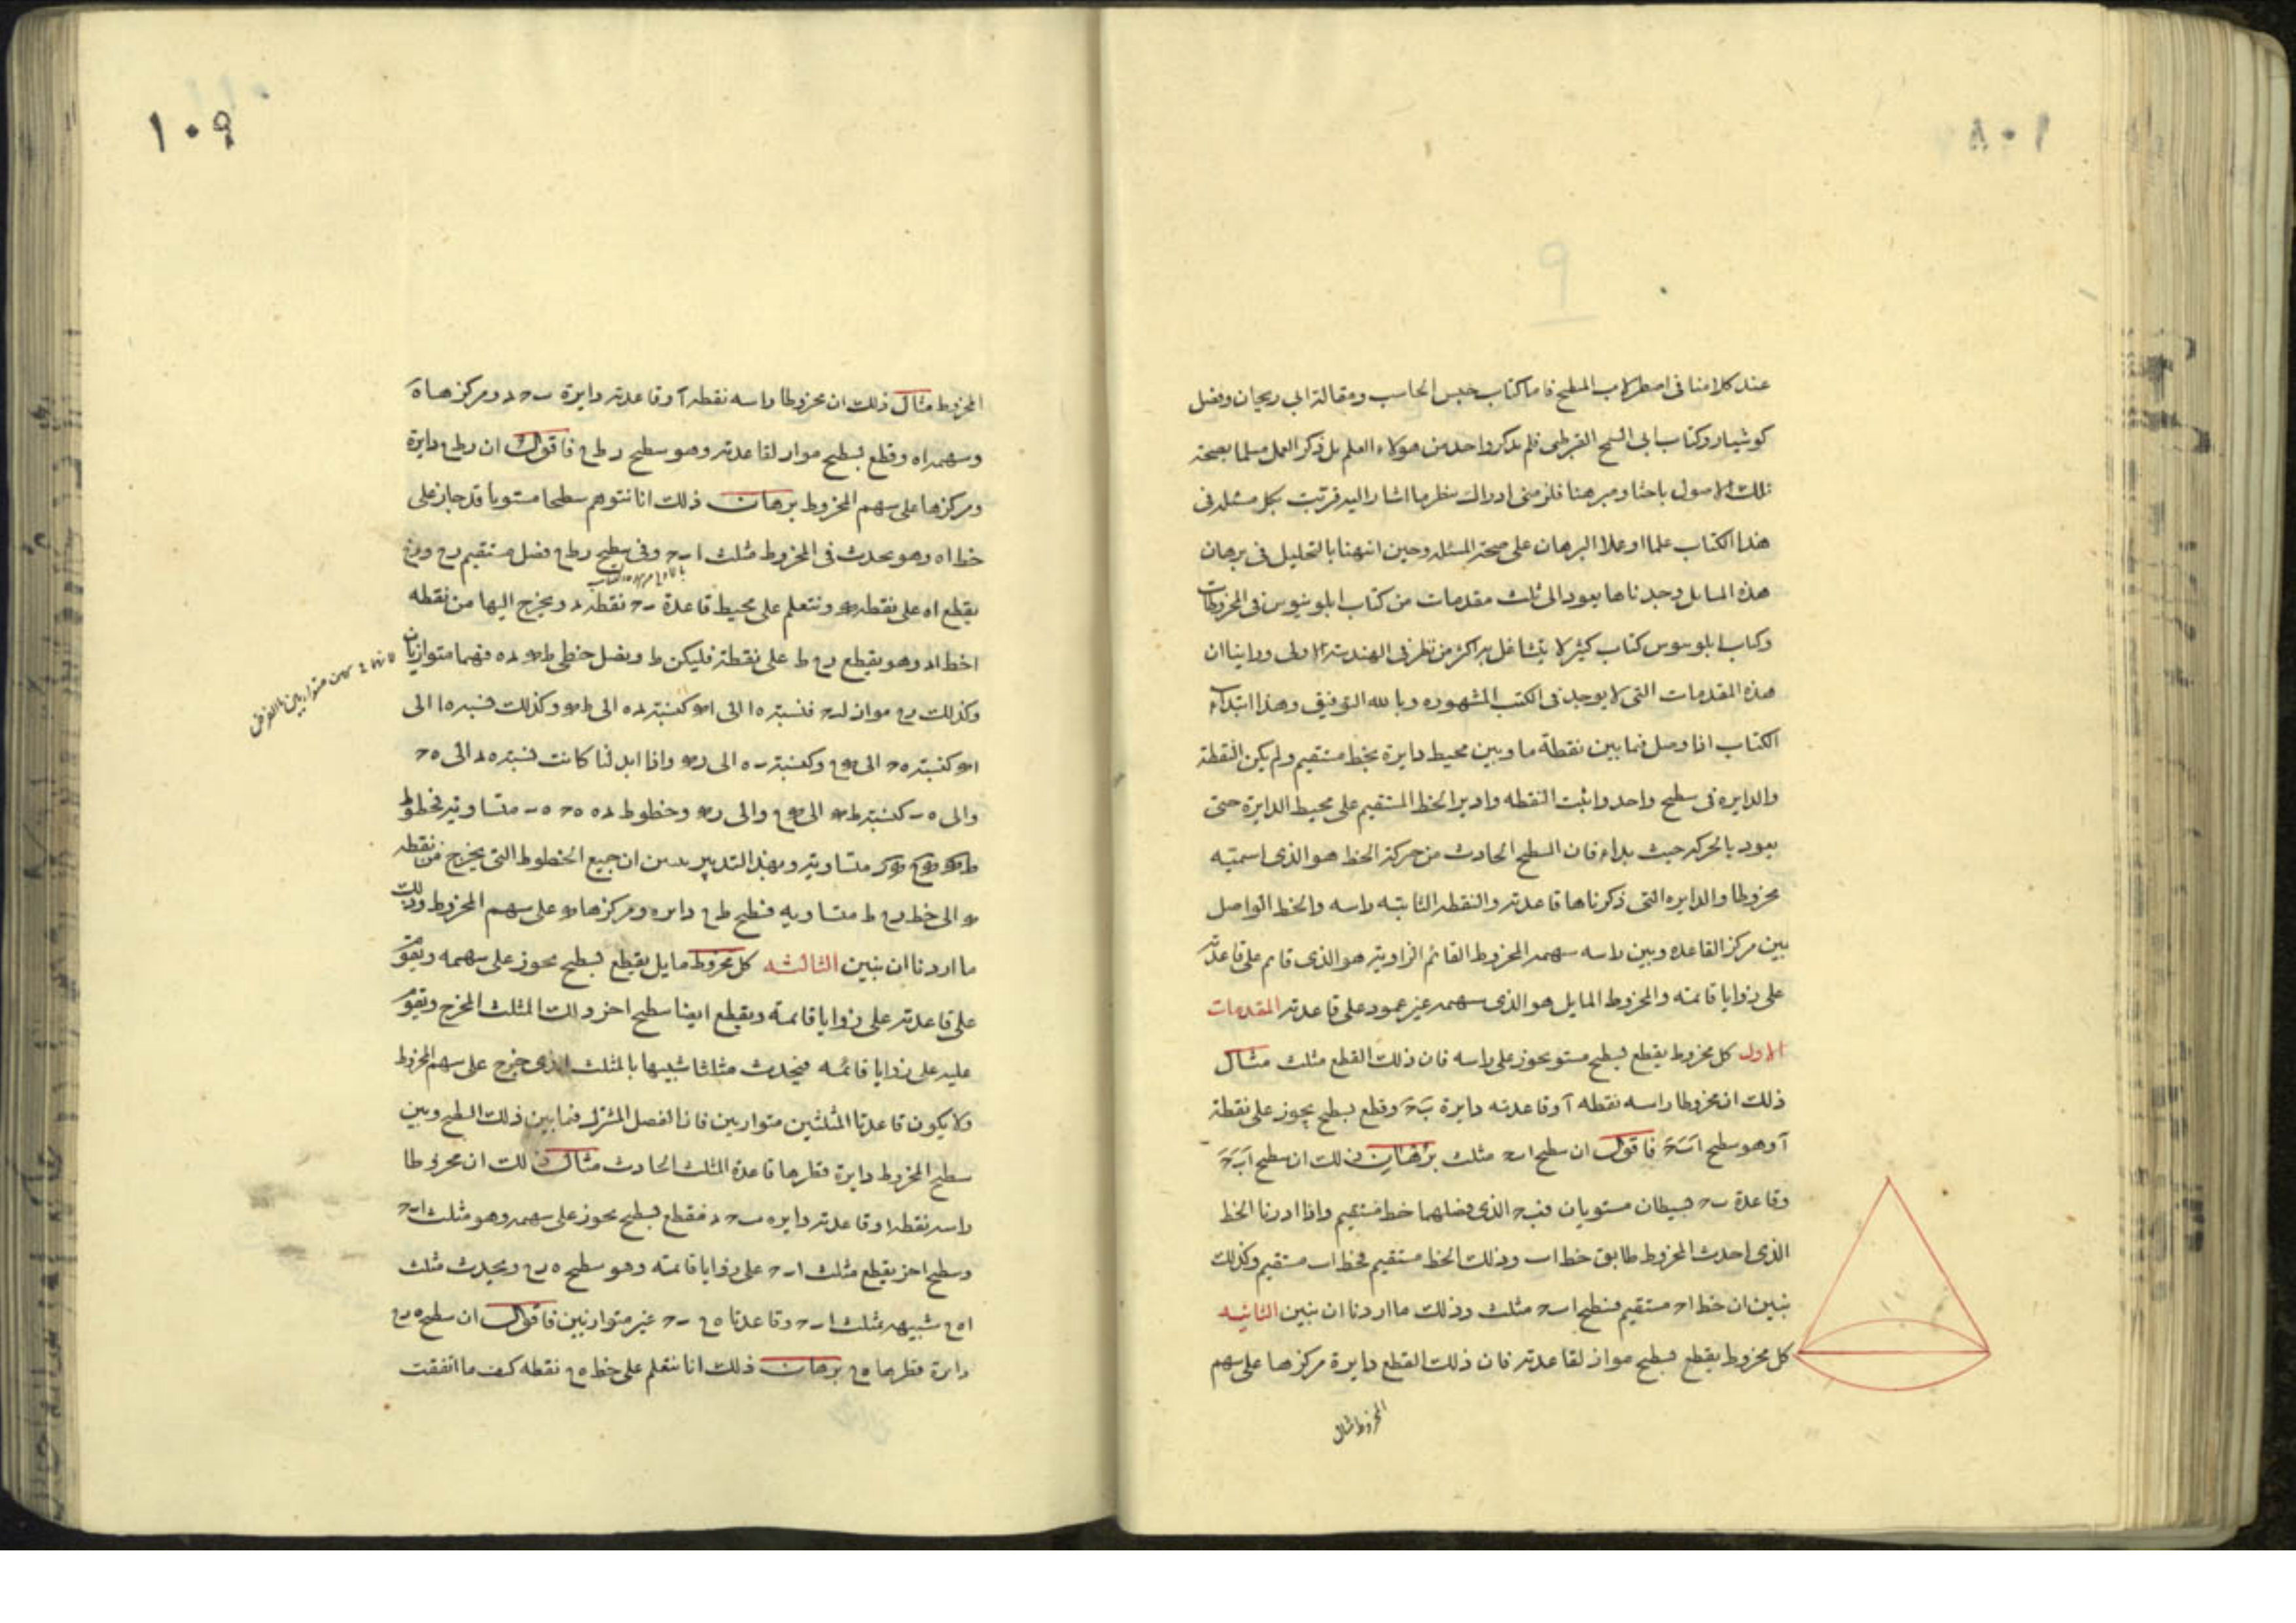 ١٠٨
عند كلامنا فى اصطرلاب المسطح فاما كتاب حبس الحاسب ومقالة ابى ريحان وفصل
كوشيار وكتاب ابى السح الفرطى فلم يذكر واحد من هولاء العلم بل ذكر العمل مسلما بصحة
تلك الاصول باحثا ومبرهنا فلزمنى ادراك نظر ما اشار اليه فرتبت بكل مسئله فى
هذا الكتاب علما او عملا البرهان على صحة المسئله وحين انتهنا بالتحليل فى برهان
هذه المسايل وجدناها يعود الى ثلث مقدمات من كتاب ابلونيوس فى المخروطات
وكتاب ابلوسوس كتاب كبير لا يتشاغل به اكثر من نظر فى الهندسة الاولى وراينا ان
هذه المقدمات التى لا يوجد فى الكتب المشهوره وبالله التوفيق وهذا ابتداء
الكتاب اذا وصل فما بين نقطة ما وبين محيط دايرة بخط مستقيم ولم يكن النقطة
والدايرة فى سطح واحد واثبت النقطه وادير الخط المستقيم على محيط الدايرة حتى
يعود بالحركه حيث بداء فان السطح الحادث من حركة الخط هو الذى اسميته
مخروطا والدايره التى ذكرناها قاعدته والنقطه الثابته راسه والخط الواصل
بين مركز القاعده وبين راسه سهمه المخروط القائم الزاويه هو الذى قام على قاعدته
على زوايا قائمه والمخروط المايل هو الذى سهمه غير عمود على قاعدته المقدمات
الاول كل مخروط يقطع بسطح مستو يحوز على راسه فان ذلك القطع مثلث مثال
ذلك ان مخروطا راسه نقطه آ وقاعدته دايرة بَ حَ وقطع بسطح يجوز على نقطة
آ وهو سطح اَبَ حَ فاقول ان سطح اب ح مثلث برهان ذلك ان سطح اَبَ حَ
وقاعدة ب ح بسيطان مستويان فب ح الذى فصلهما خط مستقيم واذا ادرنا الخط
الذى احدث المخروط طابق خط اب وذلك الخط مستقيم فخط اب مستقيم وكذلك
نبين ان خط اح مستقيم فسطح اب ح مثلث وذلك ما اردنا ان نبين الثانيه
كل مخروط يقطع بسطح مواز لقاعدته فان ذلك القطع دايرة مركزها على سهم
المخروط مثال
١٠٩
المخروط مثال ذلك ان مخروطا راسه نقطه آ وقاعدته دايرة ب ح د ومركزها هَ
وسهمه اه وقطع بسطح مواز لقاعدته وهو سطح ر ط ع فاقول ان ر ط ع دايرة
ومركزها على سهم المخروط برهان ذلك انا نتوهم سطحا مستويا قد جاز على
خط اه وهو يحدث فى المخروط مثلث اب ح وفى سطح ر ط ع فصل مستقيم رع
يقطع اه على نقطه ونتعلم على محيط قاعدة ب ح نقطه د ويخرج اليها من نقطه
ا خط اد وهو يقطع رع ط على نقطة فليكن ط ونصل خطى فهما متوازيان
متوازيين بالفرض
وكذلك رع مواز لب ح فنسبة ه ا الى كنسبة ده الى وكذلك نسبة ه ا الى
كنسبة ه ح الى وكنسبة ب ه الى واذا ابدلنا كانت نسبة ه د الى ه ح
والى ه ب كنسبة الى والى وخطوط ده ه ح ه ب متساويه فخطوط
متساويه وبهذا التدبير ان جميع الخطوط التى يخرج من نقطه
الى خط رع ط متساويه فسطح ط ع دايره ومركزها على سهم المخروط وذلك
ما اردنا ان نبين الثالثه كل مخروط مايل يقطع بسطح يحوز على سهمه ويقوم
على قاعدته على زوايا قائمه ويقطع ايضا سطح اخر ذلك المثلث المخرج ويقوم
عليه على زوايا قائمه فيحدث مثلثا شبيها بالمثلث الذى خرج على سهم المخروط
ولا يكون قاعدتا المثلثين متوازيين فان الفصل المشترك فما بين ذلك السطح وبين
سطح المخروط دايرة قطرها قاعدة المثلث الحادث مثال ذلك ان مخروطا
راسه نقطه ا وقاعدته دايره ب ح د فقطع بسطح يحوز على سهمه وهو مثلث اب ح
وسطح اخر يقطع مثلث اب ح على زوايا قائمه وهو سطح ه رع ويحدث مثلث
اه ع شبيهه بمثلث اب ح وقاعدتا ه ع ب ح غير متوازيين فاقول ان سطح ه رع
دايرة قطرها ه ع برهان ذلك انا نتعلم على خط ه ع نقطه كيف ما اتفقت